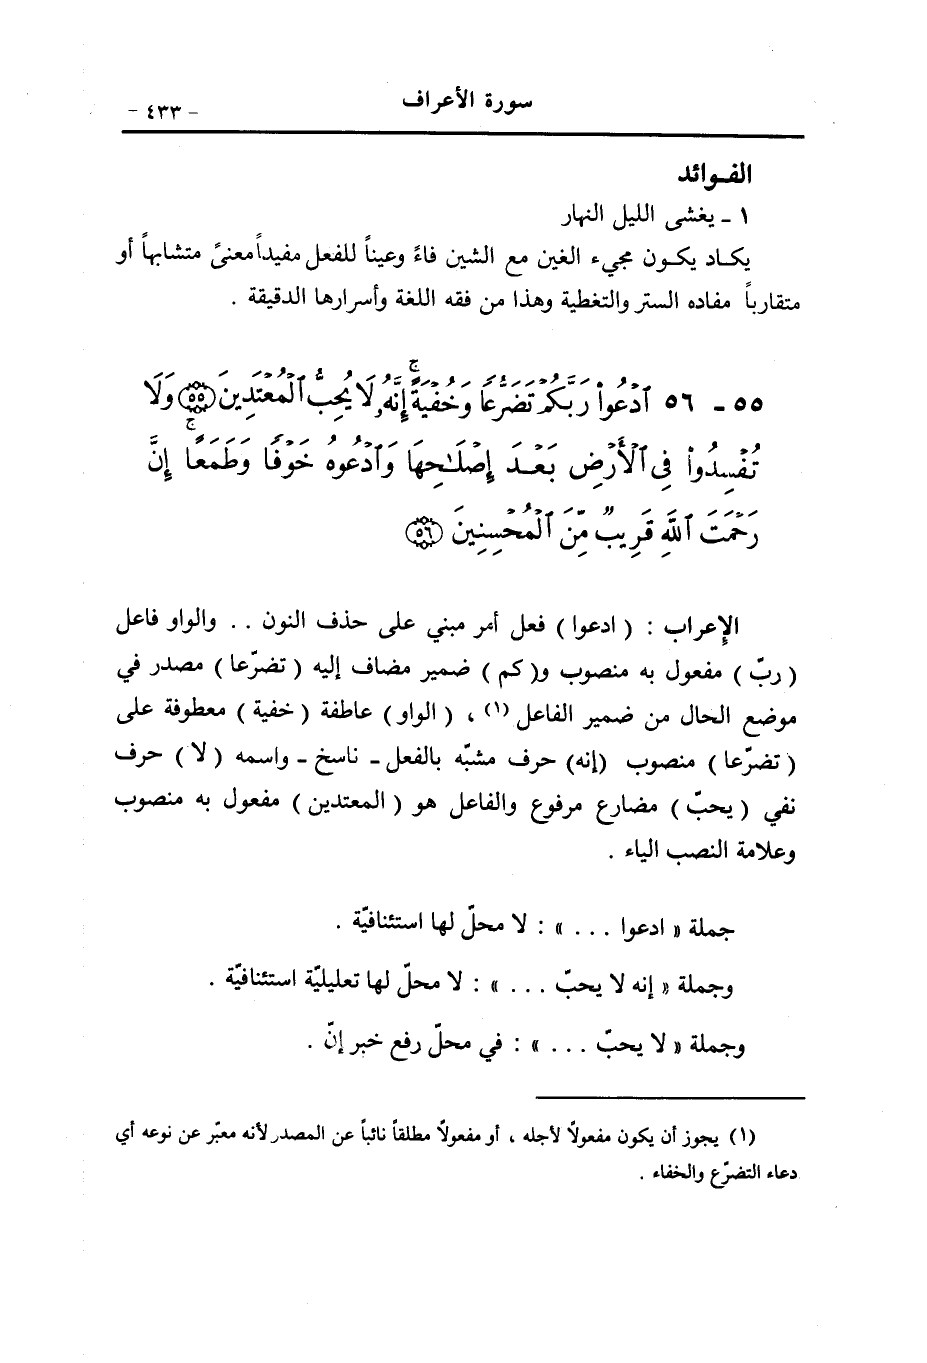 سورة الأعراف - ٤٣٣ -
الفـوائد
١ ـ يغشى الليل النهار
يكـاد يكـون مجيء الغين مع الشين فاءً وعيناً للفعل مفيداً معنىً متشابهاً أو
متقارباً مفاده الستر والتغطية وهذا من فقه اللغة وأسرارها الدقيقة .
٥٥ ـ ٥٦ ٱدْعُوا۟ رَبَّكُمْ تَضَرُّعًا وَخُفْيَةً ۚ إِنَّهُۥ لَا يُحِبُّ ٱلْمُعْتَدِينَ ﴿٥٥﴾ وَلَا
تُفْسِدُوا۟ فِى ٱلْأَرْضِ بَعْـدَ إِصْلَـٰحِهَا وَٱدْعُوهُ خَوْفًا وَطَمَعًا ۚ إِنَّ
رَحْمَتَ ٱللَّهِ قَرِيبٌ مِّنَ ٱلْمُحْسِنِينَ ﴿٥٦﴾
الإعراب : ( ادعوا ) فعل أمر مبني على حذف النون . . والواو فاعل
( ربّ ) مفعول به منصوب و( كم ) ضمير مضاف إليه ( تضرّعا ) مصدر في
موضع الحال من ضمير الفاعل (١) ، ( الواو ) عاطفة ( خفية ) معطوفة على
( تضرّعا ) منصوب (إنه) حرف مشبّه بالفعل ـ ناسخ ـ واسمه ( لا ) حرف
نفي ( يحبّ ) مضارع مرفوع والفاعل هو ( المعتدين ) مفعول به منصوب
وعلامة النصب الياء .
جملة « ادعوا . . . » : لا محلّ لها استئنافيّة .
وجملة « إنه لا يحبّ . . . » : لا محلّ لها تعليليّة استئنافيّة .
وجملة « لا يحبّ . . . » : في محلّ رفع خبر إنّ .
(١) يجوز أن يكون مفعولًا لأجله ، أو مفعولًا مطلقاً نائباً عن المصدر لأنه معبّر عن نوعه أي
دعاء التضرّع والخفاء .